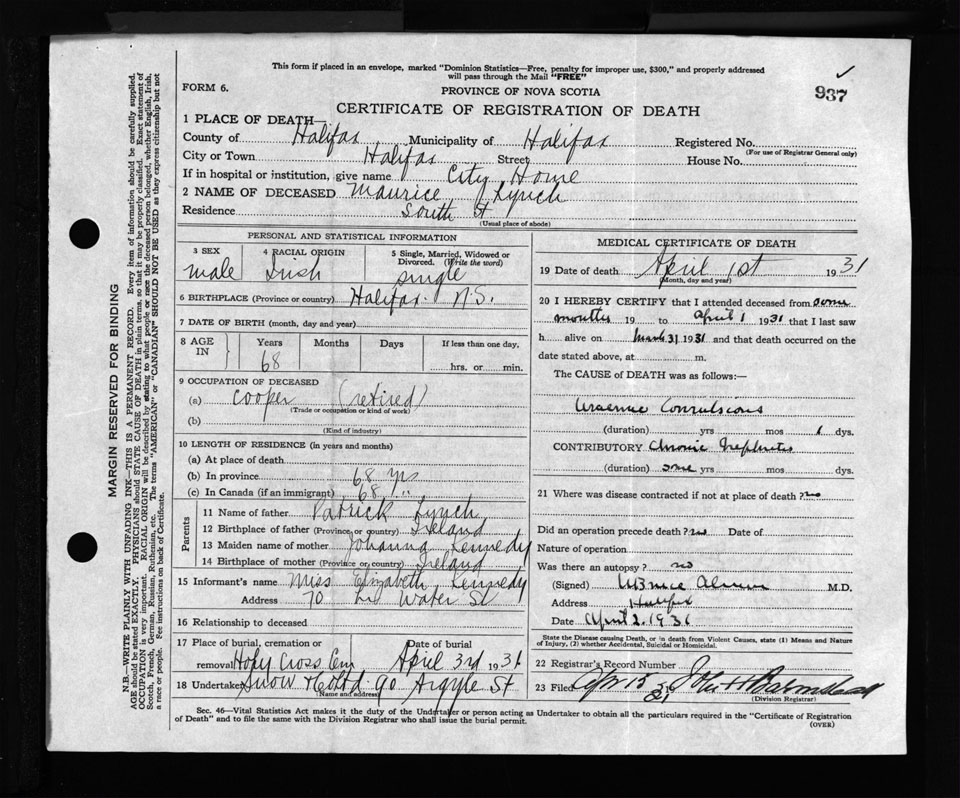 This form if placed in an envelope, marked "Dominion Statistics—Free, penalty for improper use, $300," and properly addressed
will pass through the Mail "FREE"
FORM 6.
PROVINCE OF NOVA SCOTIA
937
CERTIFICATE OF REGISTRATION OF DEATH
1 PLACE OF DEATH—
County of Halifax Municipality of Halifax Registered No.
(For use of Registrar General only)
City or Town Halifax Street House No.
If in hospital or institution, give name City Home
2 NAME OF DECEASED Maurice Lynch
Residence South St
(Usual place of abode)
PERSONAL AND STATISTICAL INFORMATION
3 SEX 4 RACIAL ORIGIN 5 Single, Married, Widowed or
Divorced. (Write the word)
male Irish single
6 BIRTHPLACE (Province or country) Halifax. N.S.
7 DATE OF BIRTH (month, day and year)
8 AGE IN Years Months Days If less than one day,
68 hrs. or min.
9 OCCUPATION OF DECEASED
(a) cooper (retired)
(Trade or occupation or kind of work)
(b)
(Kind of industry)
10 LENGTH OF RESIDENCE (in years and months)
(a) At place of death
(b) In province 68 yrs
(c) In Canada (if an immigrant) 68 "
Parents
11 Name of father Patrick Lynch
12 Birthplace of father (Province or country) Ireland
13 Maiden name of mother Johanna Kennedy
14 Birthplace of mother (Province or country) Ireland
15 Informant's name Miss Elizabeth Kennedy
Address 70 Water St
16 Relationship to deceased
17 Place of burial, cremation or Date of burial
removal Holy Cross Cem April 3rd 1931
18 Undertaker Snow & Co Ltd 90 Argyle St
(Name and address)
MEDICAL CERTIFICATE OF DEATH
19 Date of death April 1st 1931
(Month, day and year)
20 I HEREBY CERTIFY that I attended deceased from some
months 19 to April 1 1931 that I last saw
h alive on March 31 1931 and that death occurred on the
date stated above, at m.
The CAUSE of DEATH was as follows:—
Uraemic Convulsions
(duration) yrs mos 1 dys.
CONTRIBUTORY Chronic Nephritis
(duration) some yrs mos dys.
21 Where was disease contracted if not at place of death? no
Did an operation precede death? no Date of
Nature of operation
Was there an autopsy? no
(Signed) M.D.
Address Halifax
Date April 2. 1931
State the Disease causing Death, or in death from Violent Causes, state (1) Means and Nature
of Injury, (2) whether Accidental, Suicidal or Homicidal.
22 Registrar's Record Number
23 Filed Apr 15 31 John H Barnstead
(Division Registrar)
Sec. 46—Vital Statistics Act makes it the duty of the Undertaker or person acting as Undertaker to obtain all the particulars required in the "Certificate of Registration
of Death" and to file the same with the Division Registrar who shall issue the burial permit.
(OVER)
MARGIN RESERVED FOR BINDING
N.B.—WRITE PLAINLY WITH UNFADING INK—THIS IS A PERMANENT RECORD. Every item of information should be carefully supplied.
AGE should be stated EXACTLY. PHYSICIANS should STATE CAUSE OF DEATH in plain terms, so that it may be properly classified. Exact statement of
OCCUPATION is very important. RACIAL ORIGIN will be described by stating to what people or race the deceased person belonged, whether English, Irish,
Scotch, French, German, Russian, Ruthenian, etc. The terms "AMERICAN" or "CANADIAN" SHOULD NOT BE USED as they express citizenship but not
a race or people. Fee instructions on back of Certificate.